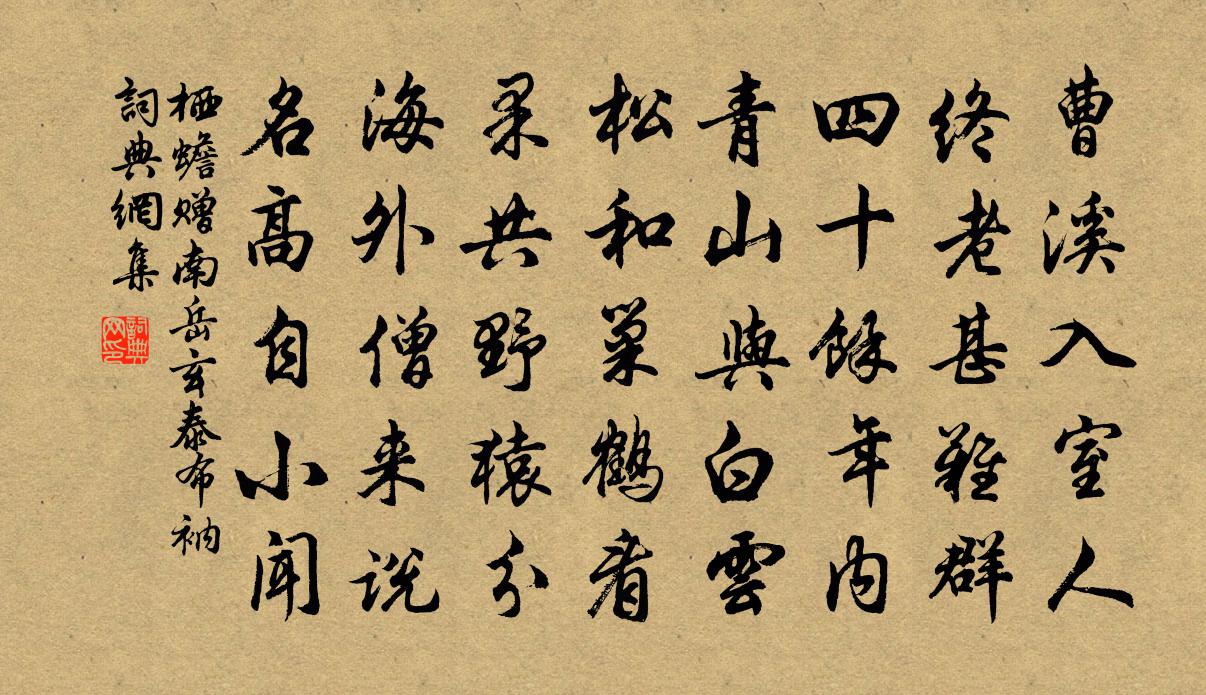 曹溪入室人
终老甚難群
四十餘年内
青山與白雲
松和巢鶴看
果共野猿分
海外僧来説
名高自小聞
栖蟾赠南岳玄泰布衲
詞典網集
詞典网印